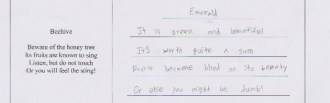 Beehive
Beware of the honey tree
Its fruits are known to sing
Listen, but do not touch
Or you will feel the sting!
Emerald
It is green and beautiful
It's worth quite a sum
Don't become blind on its beauty
Or else you might be dumb!